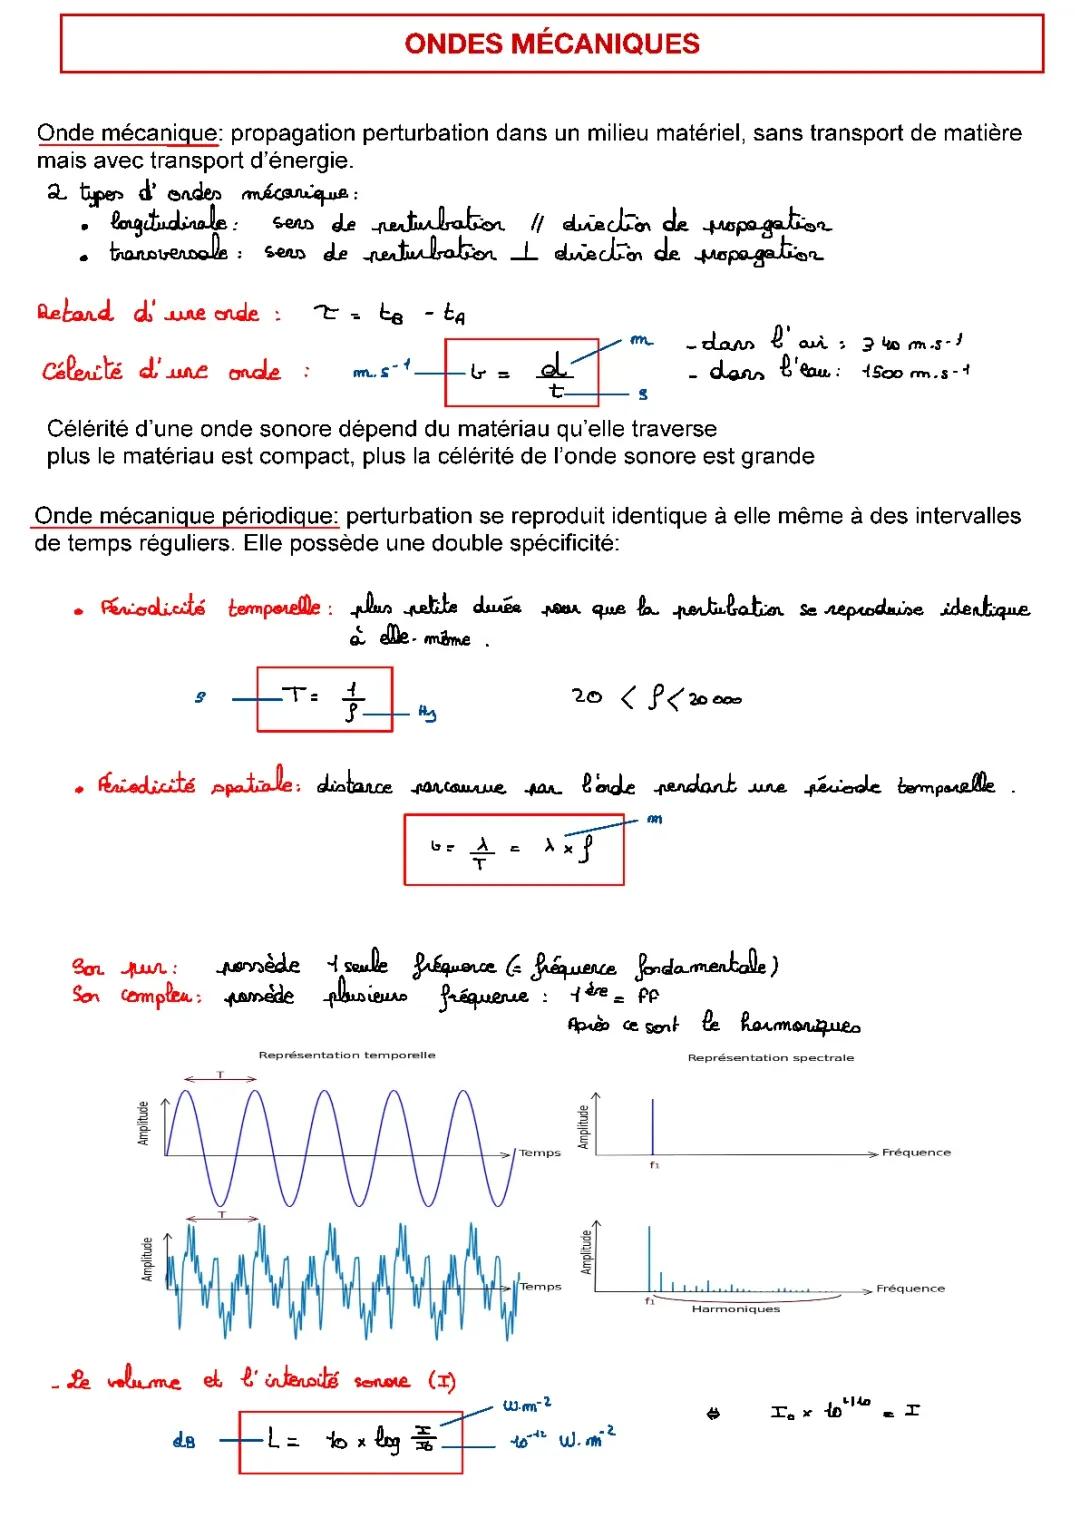 ONDES MÉCANIQUES
Onde mécanique: propagation perturbation dans un milieu matériel, sans transport de matière
mais avec transport d'énergie.
2 types d'ondes mécanique:
• longitudinale: sens de perturbation // direction de propagation
• transversale: sens de perturbation ⊥ direction de propagation
Retard d'une onde : τ = tB - tA
Célérité d'une onde : m.s-1 v = d/t m s
- dans l'air : 340 m.s-1
- dans l'eau : 1500 m.s-1
Célérité d'une onde sonore dépend du matériau qu'elle traverse
plus le matériau est compact, plus la célérité de l'onde sonore est grande
Onde mécanique périodique: perturbation se reproduit identique à elle même à des intervalles
de temps réguliers. Elle possède une double spécificité:
• Périodicité temporelle : plus petite durée pour que la pertubation se reproduise identique
à elle-même.
s T = 1/f Hz 20 < f < 20 000
• Périodicité spatiale: distance parcourue par l'onde pendant une période temporelle.
v = λ/T = λ × f m
Son pur : possède 1 seule fréquence (= fréquence fondamentale)
Son complex : possède plusieurs fréquence : 1ère = ff
Après ce sont le harmoniques
Représentation temporelle
Représentation spectrale
T
Amplitude
Temps
Amplitude
f1
Fréquence
T
Amplitude
Temps
Amplitude
f1
Harmoniques
Fréquence
- Le volume et l'intensité sonore (I)
dB L = 10 × log I/I0 W.m-2 10-12 W.m-2 ⇔ I0 × 10^L/10 = I